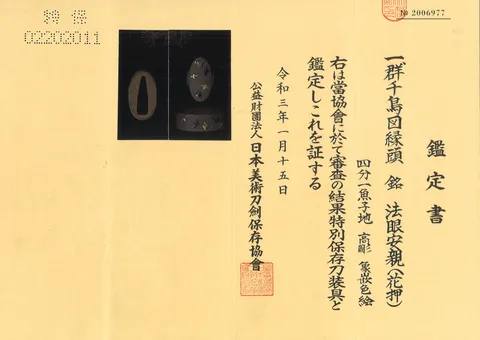 № 2006977
鑑定書
一、群千鳥図縁頭 銘 法眼安親(花押)
四分一魚子地 高彫 象嵌色絵
右は當協會に於て審査の結果特別保存刀装具と
鑑定しこれを証する
令和三年一月十五日
公益財團法人 日本美術刀劍保存協會
特保
02202011